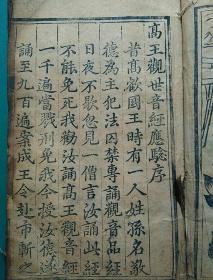 高王觀世音經應驗序
昔高歡國王時有一人姓孫名敬
德為主犯法囚禁專誦觀音品經
日夜不歇忽見一僧言汝誦此經
不能免死我勸汝誦高王觀音經
一千遍當戮刑免我今授汝德遂
誦至九百遍案成王令赴市斬之